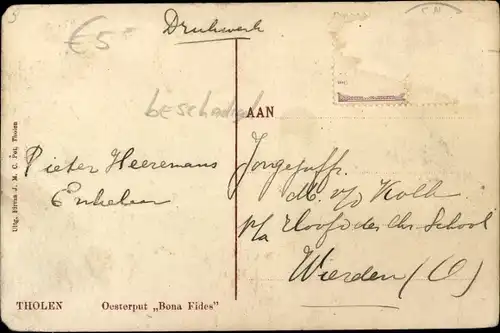 5
€5
Drukwerk
beschadigd
Uitg. Firma J. M. C. Pot, Tholen
Pieter Heeremans
AAN
Jongejuffr.
M. v/d Kolk
p/a Hoofd der Chr. School
Wierden (O)
THOLEN Oesterput „Bona Fides"